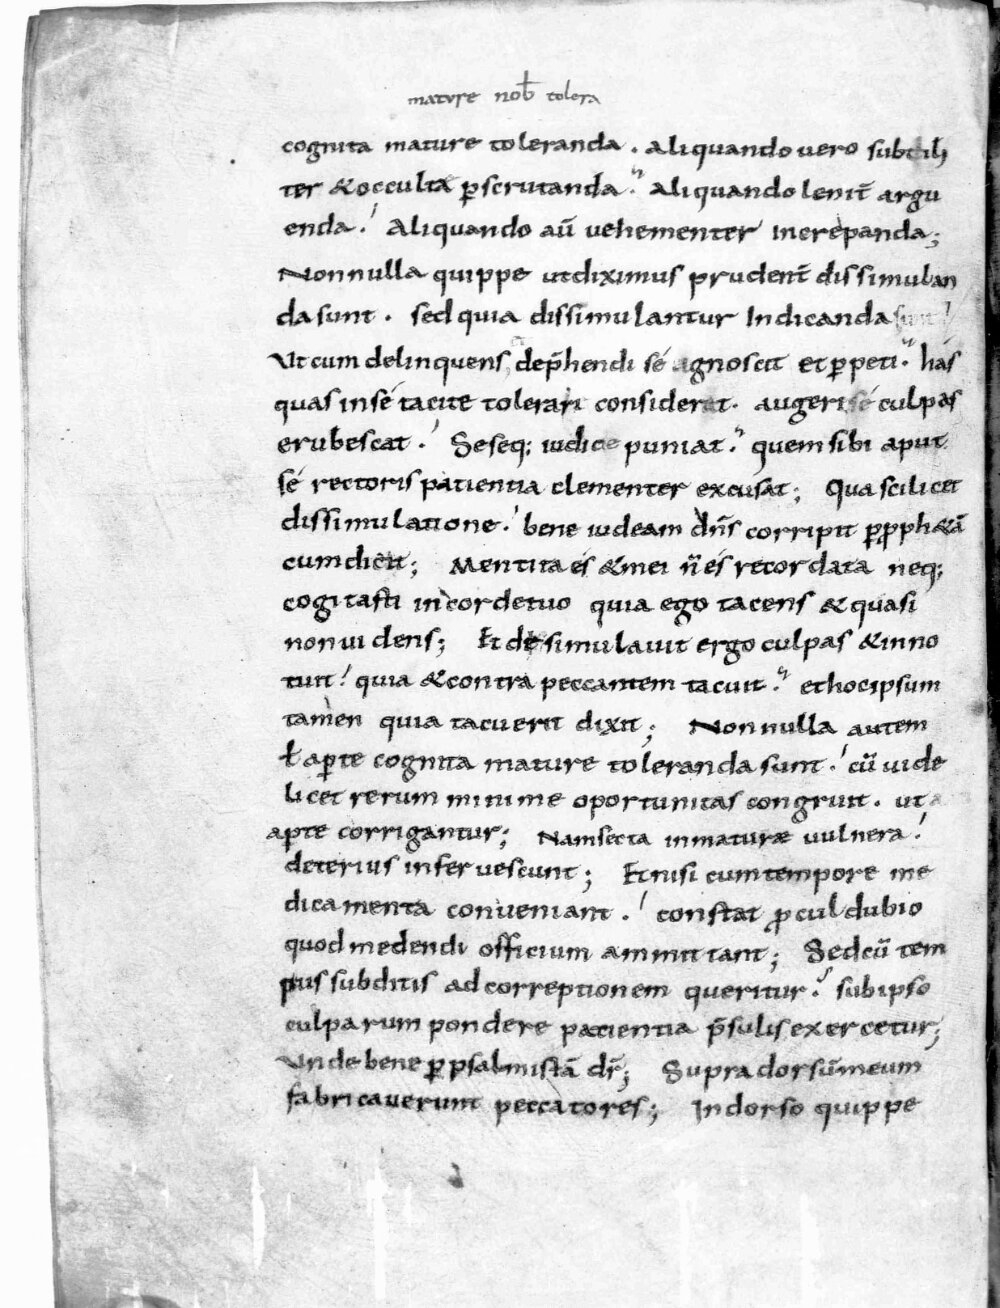 mature nob̄ tolera
cognita mature toleranda . Aliquando vero subtili
ter &occulta ꝑscrutanda . Aliquando lenit̄ argu
enda . Aliquando aū vehementer increpanda ;
Nonnulla quippe utdiximus prudent̄ dissimulan
da sunt . sed quia dissimulantur Indicanda sunt
Ut cum delinquens dep̄hendi sé agnoscit et ꝑpeti . hás
quas insé tacite tolerari considerat . augeri sé culpas
erubescat . Seseq; iudice puniat . quem sibi aput
sé rectoris patientia clementer excusat ; Qua scilicet
dissimulatione . bene iudeam dn̄s corripit ꝑꝓph&ā
cum dicit ; Mentita és &mei n̄ és recordata neq;
cogitasti in corde tuo quia ego tacens &quasi
non videns ; Et desimulavit ergo culpas &inno
tuit . quia &contra peccantem tacuit . et hoc ipsum
tamen quia tacuerit dixit ; Nonnulla autem
ł aꝑte cognita mature toleranda sunt . cū vide
licet rerum minime oportunitas congruit . ut
aꝑte corrigantur ; Nam secta inmaturae vulnera .
deterius infervescunt ; Et nisi cum tempore me
dicamenta conveniant . constat ꝓcul dubio
quod medendi officium ammittant ; Sed cū tem
pus subditis ad correptionem queritur . sub ipso
culparum pondere patientia p̄sulis exercetur ;
Unde bene ꝑ psalmistā dr̄ ; Supra dorsūmeum
fabricaverunt peccatores ; In dorso quippe